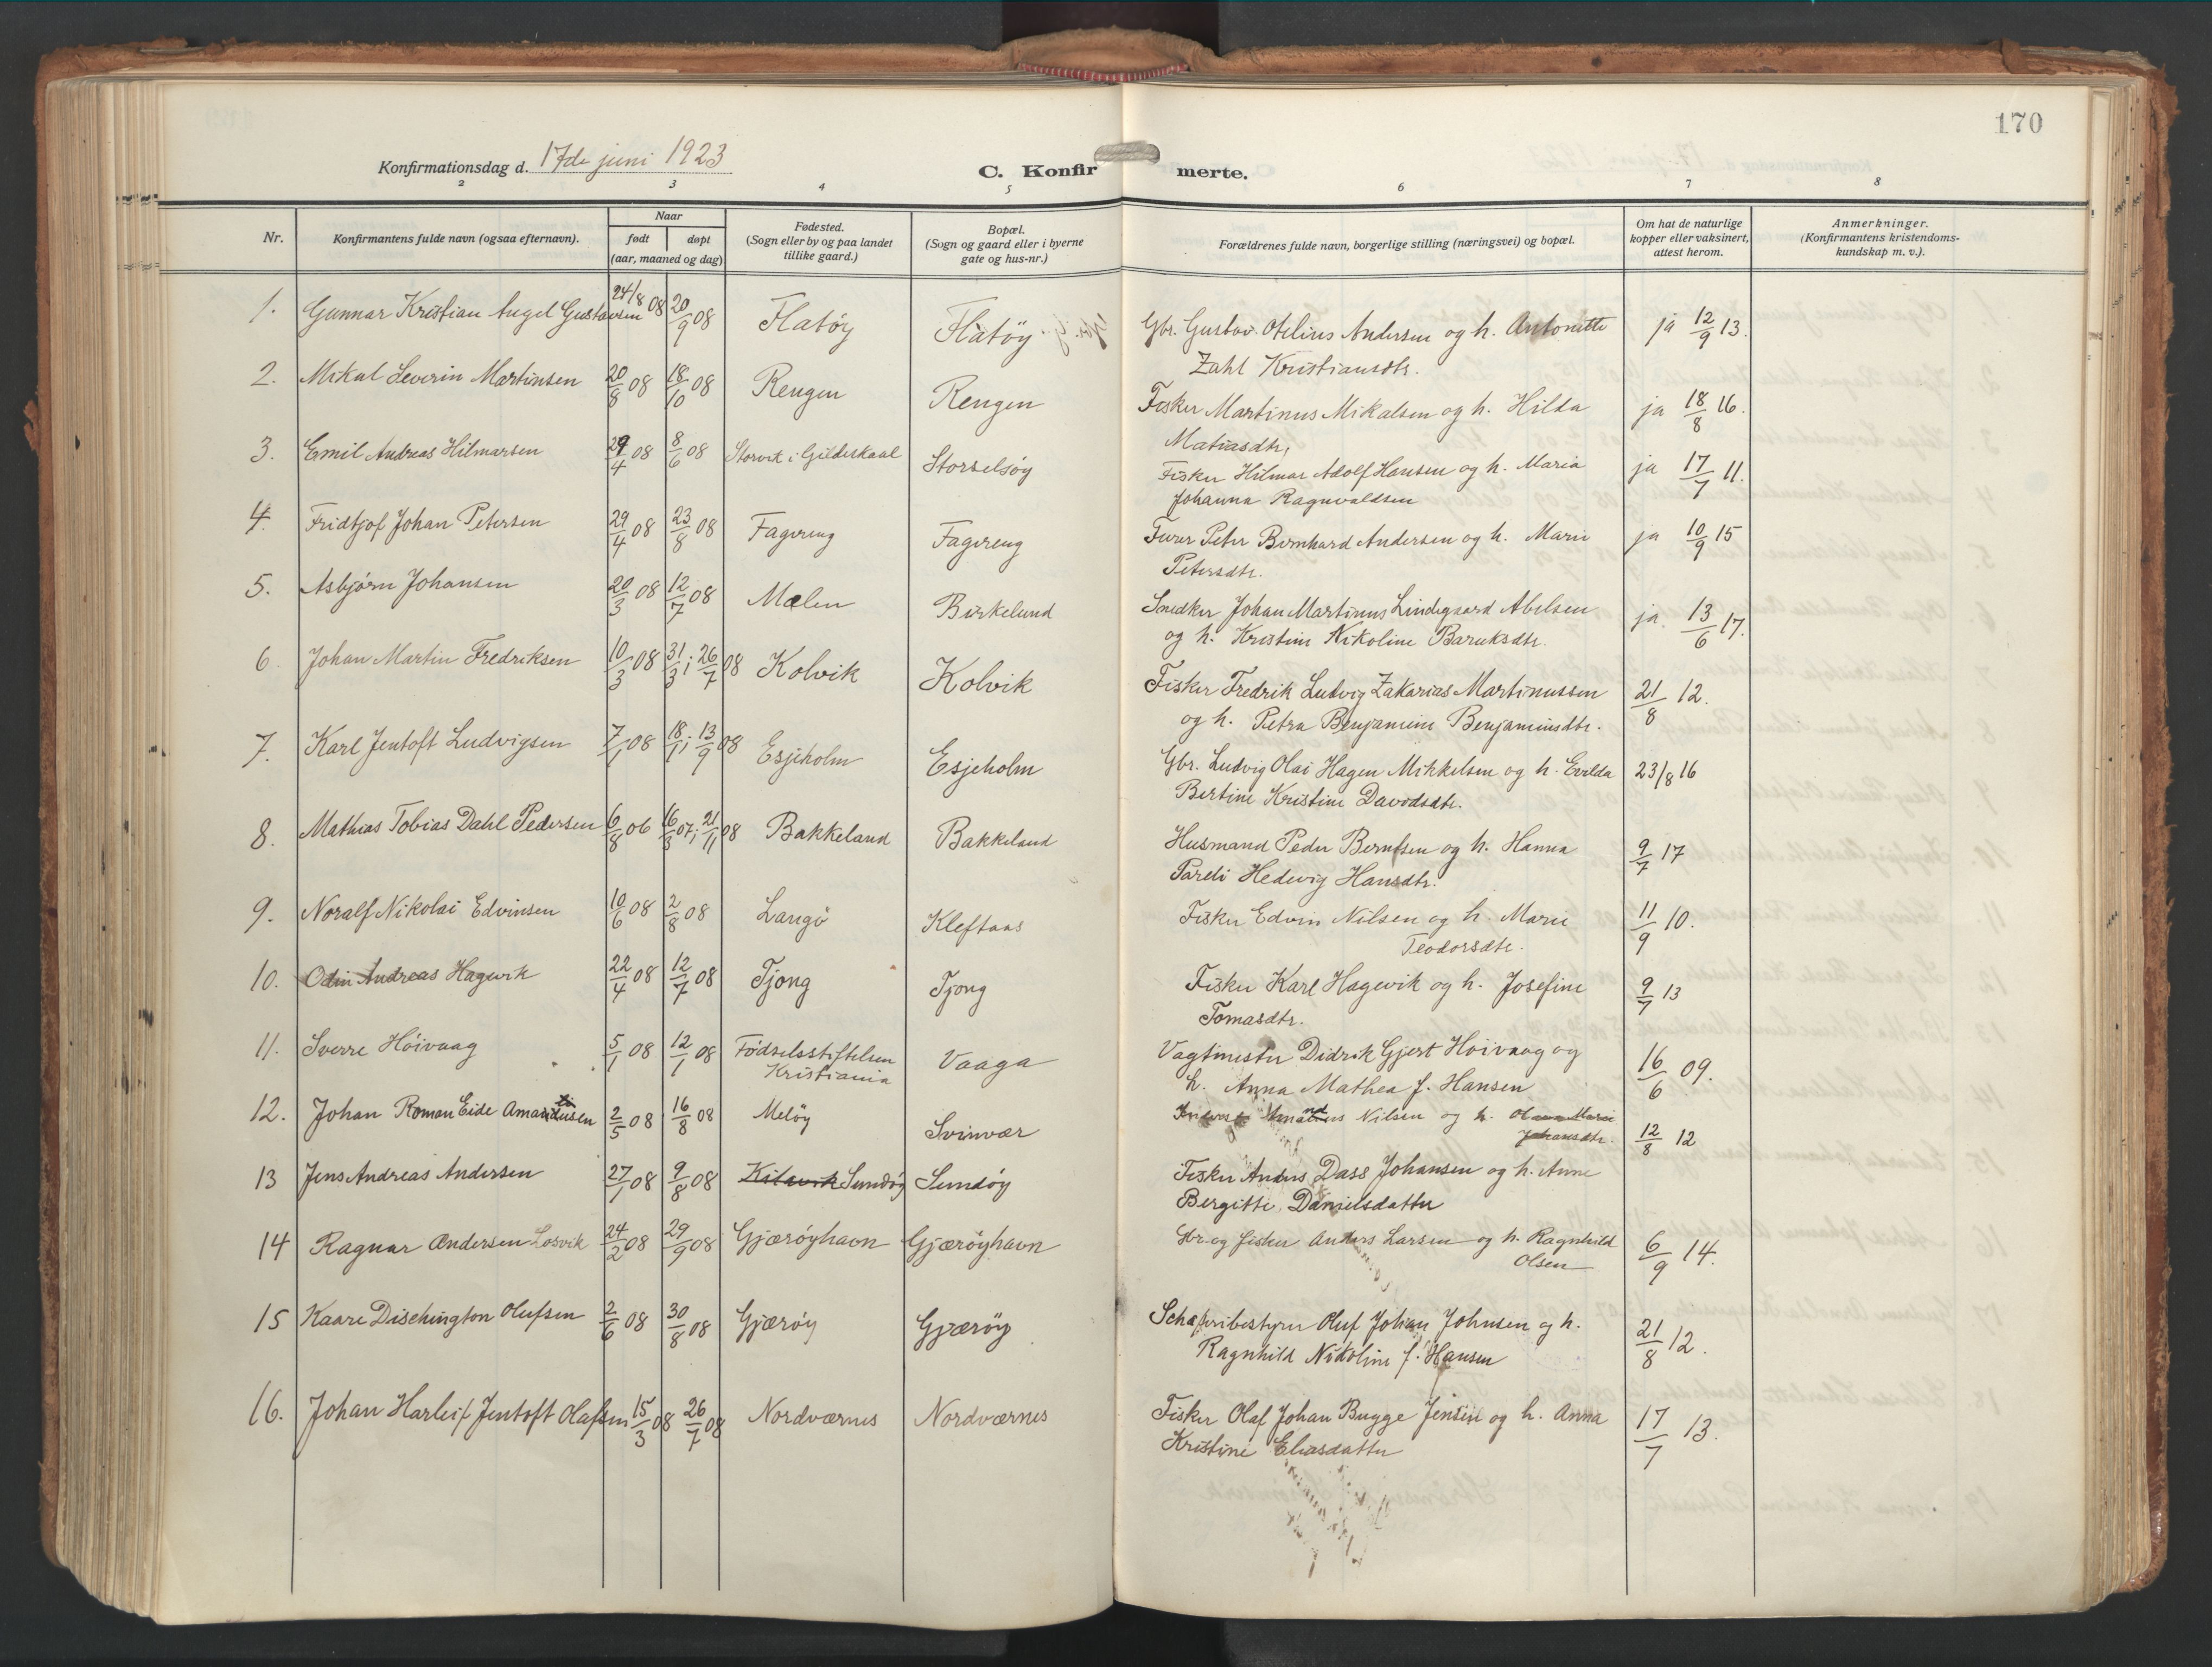 170
Konfirmationsdag d. 17de juni 1923
C. Konfirmerte.
2 3 4 5 6 7 8
Nr.
Konfirmantens fulde navn (ogsaa efternavn).
Naar
født døpt
(aar, maaned og dag)
Fødested.
(Sogn eller by og paa landet
tillike gaard.)
Bopæl.
(Sogn og gaard eller i byerne
gate og hus-nr.)
Forældrenes fulde navn, borgerlige stilling (næringsvei) og bopæl.
Om hat de naturlige
kopper eller vaksinert,
attest herom.
Anmerkninger.
(Konfirmantens kristendoms-
kundskap m. v.).
1. Gunnar Kristian Angel Gustavsen 24/8 08 20/9 08 Flatøy Flatöy Gbr. Gustav Otelius Andersen og h. Antonette ja 12/9 13.
Zahl Kristiansdtr.
2. Mikal Severin Martinsen 20/8 08 18/10 08 Rengen Rengen Fisker Martinus Mikalsen og h. Hilda ja 18/8 16.
Matiasdtr,
3. Emil Andreas Hilmarsen 29/4 08 8/6 08 Storvik i Gildeskaal Storselsøy Fisker Hilmar Adolf Hansen og h. Maria ja 17/7 11.
Johanna Ragnvaldsen
4. Fridtjof Johan Petersen 29/4 08 23/8 08 Fagereng Fagereng Furer Peter Bernhard Andersen og h. Marie ja 10/9 15
Petersdtr.
5. Asbjørn Johansen 20/3 08 12/7 08 Mælen Birkelund Snedker Johan Martinus Lindegaard Abelsen ja. 13/6 17.
og h. Kristine Nikoline Baruksdtr.
6. Johan Martin Fredriksen 10/3 08 31/3; 26/7 08 Kolvik Kolvik Fisker Fredrik Ludvig Zakarias Martinussen 21/8 12.
og h. Petra Benjamine Benjaminsdtr.
7. Karl Jentoft Ludvigsen 7/1 08 18/1; 13/9 08 Esjeholm Esjeholm Gbr. Ludvig Olai Hagen Mikkelsen og h. Evelda 23/8 16
Bertine Kristine Davidsdtr.
8. Mathias Tobias Dahl Pedersen 6/8 06 16/3 07; 21/11 08 Bakkeland Bakkeland Husmand Peder Berntsen og h. Hanna 9/7 17
Pareli Hedevig Hansdtr.
9. Noralf Nikolai Edvinsen 10/6 08 2/8 08 Langö Kleftaas Fisker Edvin Nilsen og h. Marie 11/9 10.
Teodorsdtr.
10. Odin Andreas Hagevik 22/4 08 12/7 08 Tjong Tjong Fisker Karl Hagevik og h. Josefine 9/7 13
Tomasdtr.
11. Sverre Höivaag 5/1 08 12/1 08 Födselsstiftelsen Vaaga Vagtmester Didrik Gjert Hoivaag og 16/6 09.
Kristiania h. Anna Mathea f. Hansen
12. Johan Roman Eide Amandusen 2/5 08 16/8 08 Meløy Svinvær Amandus Nilsen og h. Marie 12/8 12
Johansdtr.
13 Jens Andreas Andersen 27/1 08 9/8 08 Kilavik Sundøy Sundøy Fisker Anders Dass Johansen og h. Anne
Bergitte Danielsdatter
14 Ragnar Andersen Losvik 24/2 08 29/9 08 Gjærøyhavn Gjærøyhavn Gbr. og fisker Anders Larsen og h. Ragnhild 6/9 14.
Olsen
15 Kaare Dischington Olufsen 2/6 08 30/8 08 Gjærøy Gjærøy Schæferibestyrer Oluf Johan Johnsen og h. 21/8 12.
Ragnhild Nikoline f. Hansen
16. Johan Harleif Jentoft Olafsen 15/3 08 26/7 08 Nordværnes Nordværnes Fisker Olaf Johan Bugge Jensen og h. Anna 17/7 13.
Kristine Eliasdatter